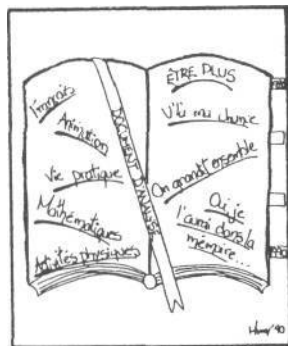 Français
Animation
Vie pratique
Mathématiques
Activités physiques
DOCUMENT D'ANALYSE
ÊTRE PLUS
On grandit ensemble
Oui je
l'aurai dans la
mémoire...